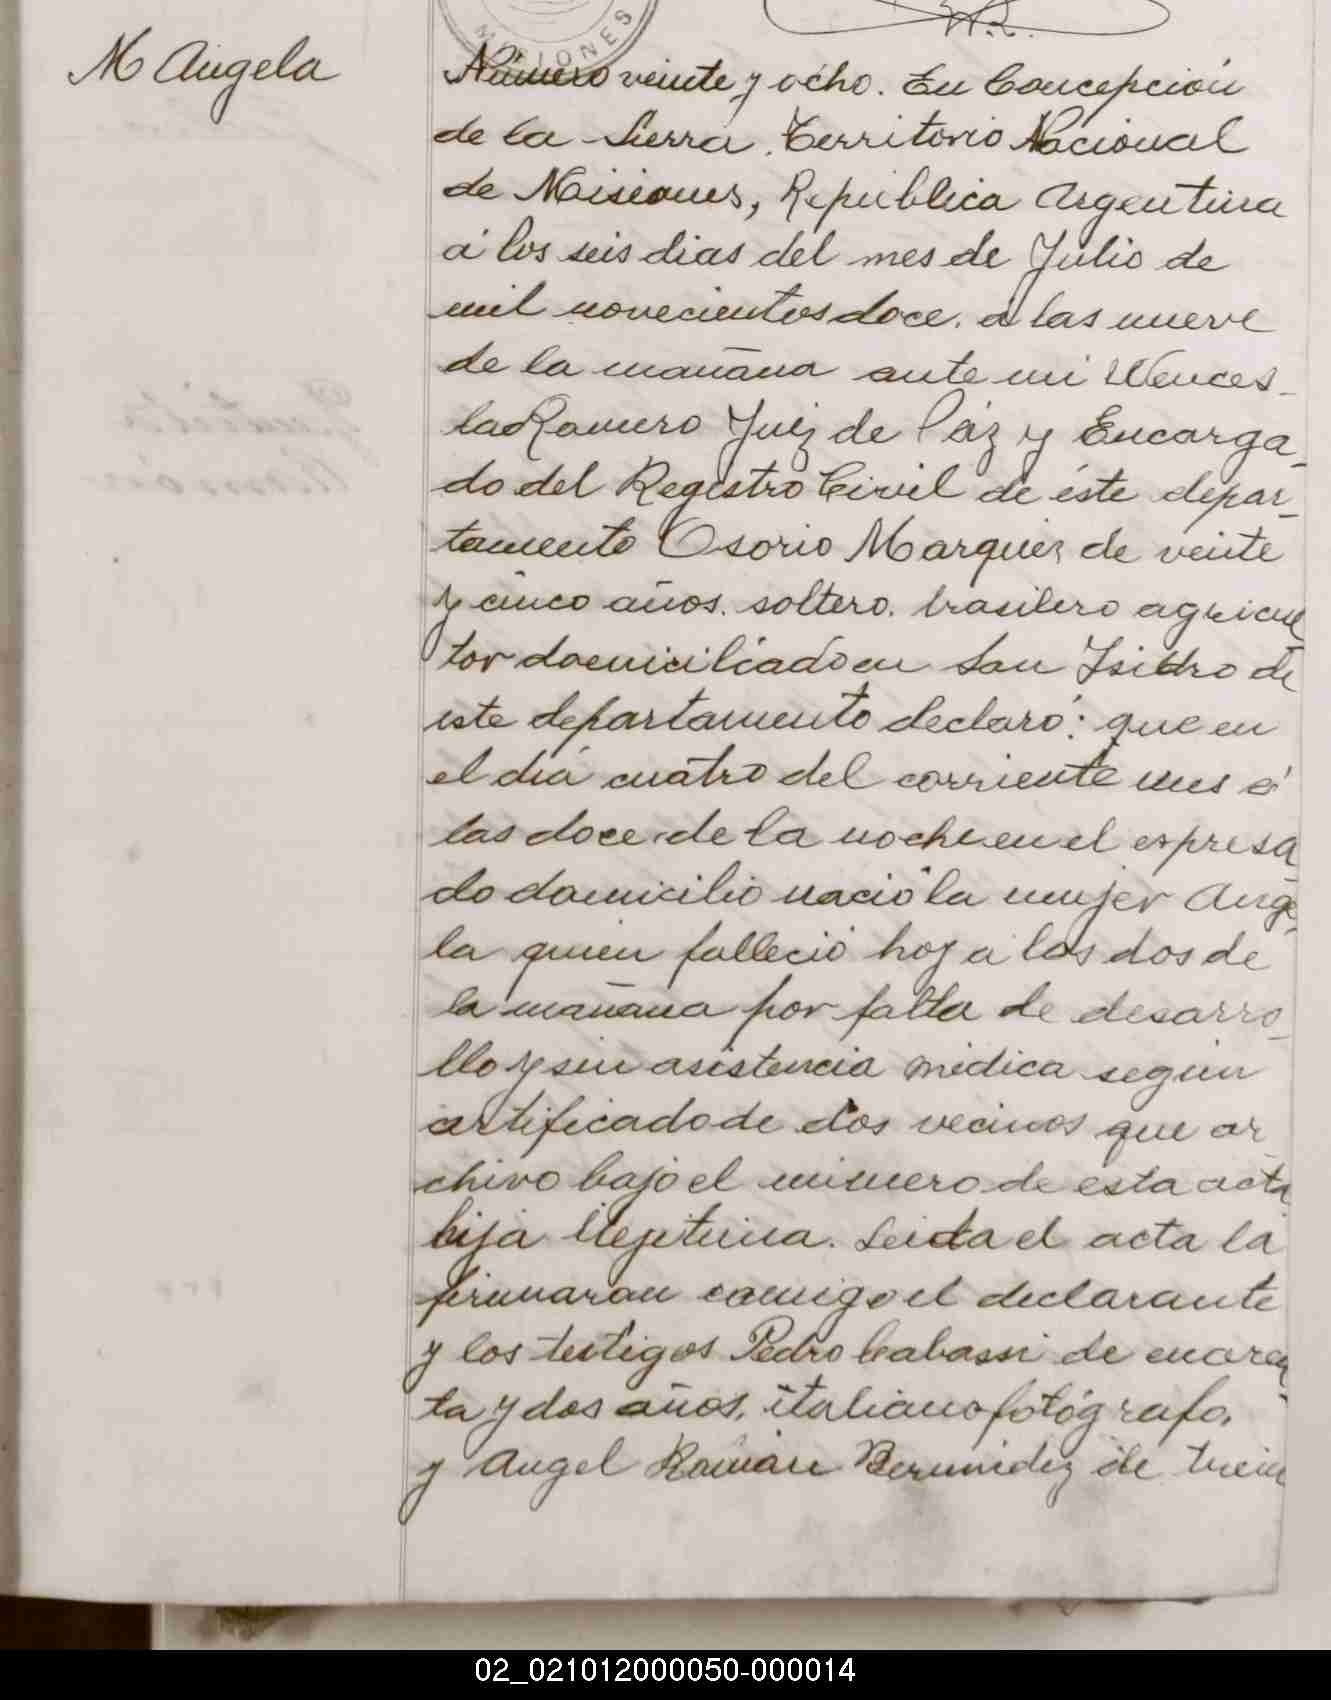 MISIONES
M Angela
Número veinte y ocho. En Concepción
de la Sierra. Territorio Nacional
de Misiones, República Argentina
á los seis dias del mes de Julio de
mil novecientos doce. á las nueve
de la mañana ante mi Wences-
lao Romero Juez de Páz y Encarga-
do del Registro Civil de éste depar-
tamento Osorio Marques de veinte
y cinco años. soltero. brasilero agricul-
tor domiciliado en San Isidro de
este departamento declaró: que en
el dia cuatro del corriente mes á
las doce de la noche en el expresa-
do domicilio nació la mujer Ange-
la quien falleció hoy a las dos de
la mañana por falta de desarro-
llo y sin asistencia médica según
certificado de dos vecinos que ar-
chivo bajo el número de esta acta
hija ilegitima. Leida el acta la
firmaran conmigo el declarante
y los testigos Pedro Cabassi de cuaren-
ta y dos años. italiano fotógrafo.
y Angel Román Bermúdez de trein
02_021012000050-000014